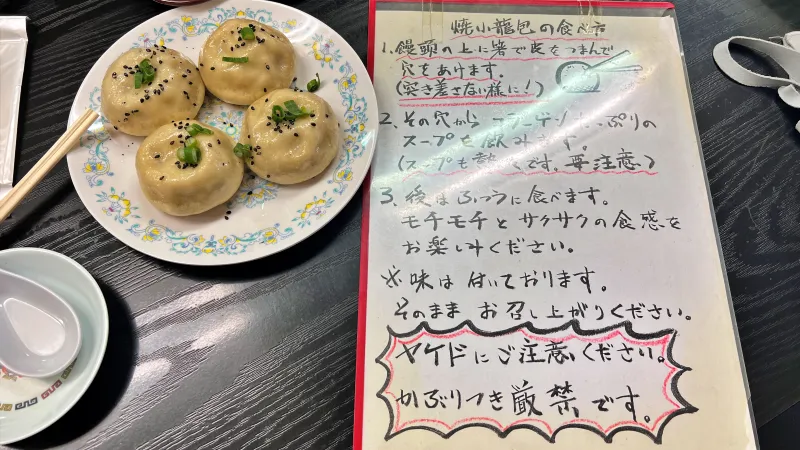 焼小龍包の食べ方
1. 饅頭の上に箸で皮をつまんで
穴をあけます。
(突き差さない様に!)
2、その穴から コラーゲン ぷりの
スープを飲みます。
(スープも熱いです。要注意)
3、後はふつうに食べます。
モチモチとサクサクの食感を
お楽しみください。
※味は付いております。
そのまま お召し上がりください。
ヤケドにご注意ください。
かぶりつき厳禁です。